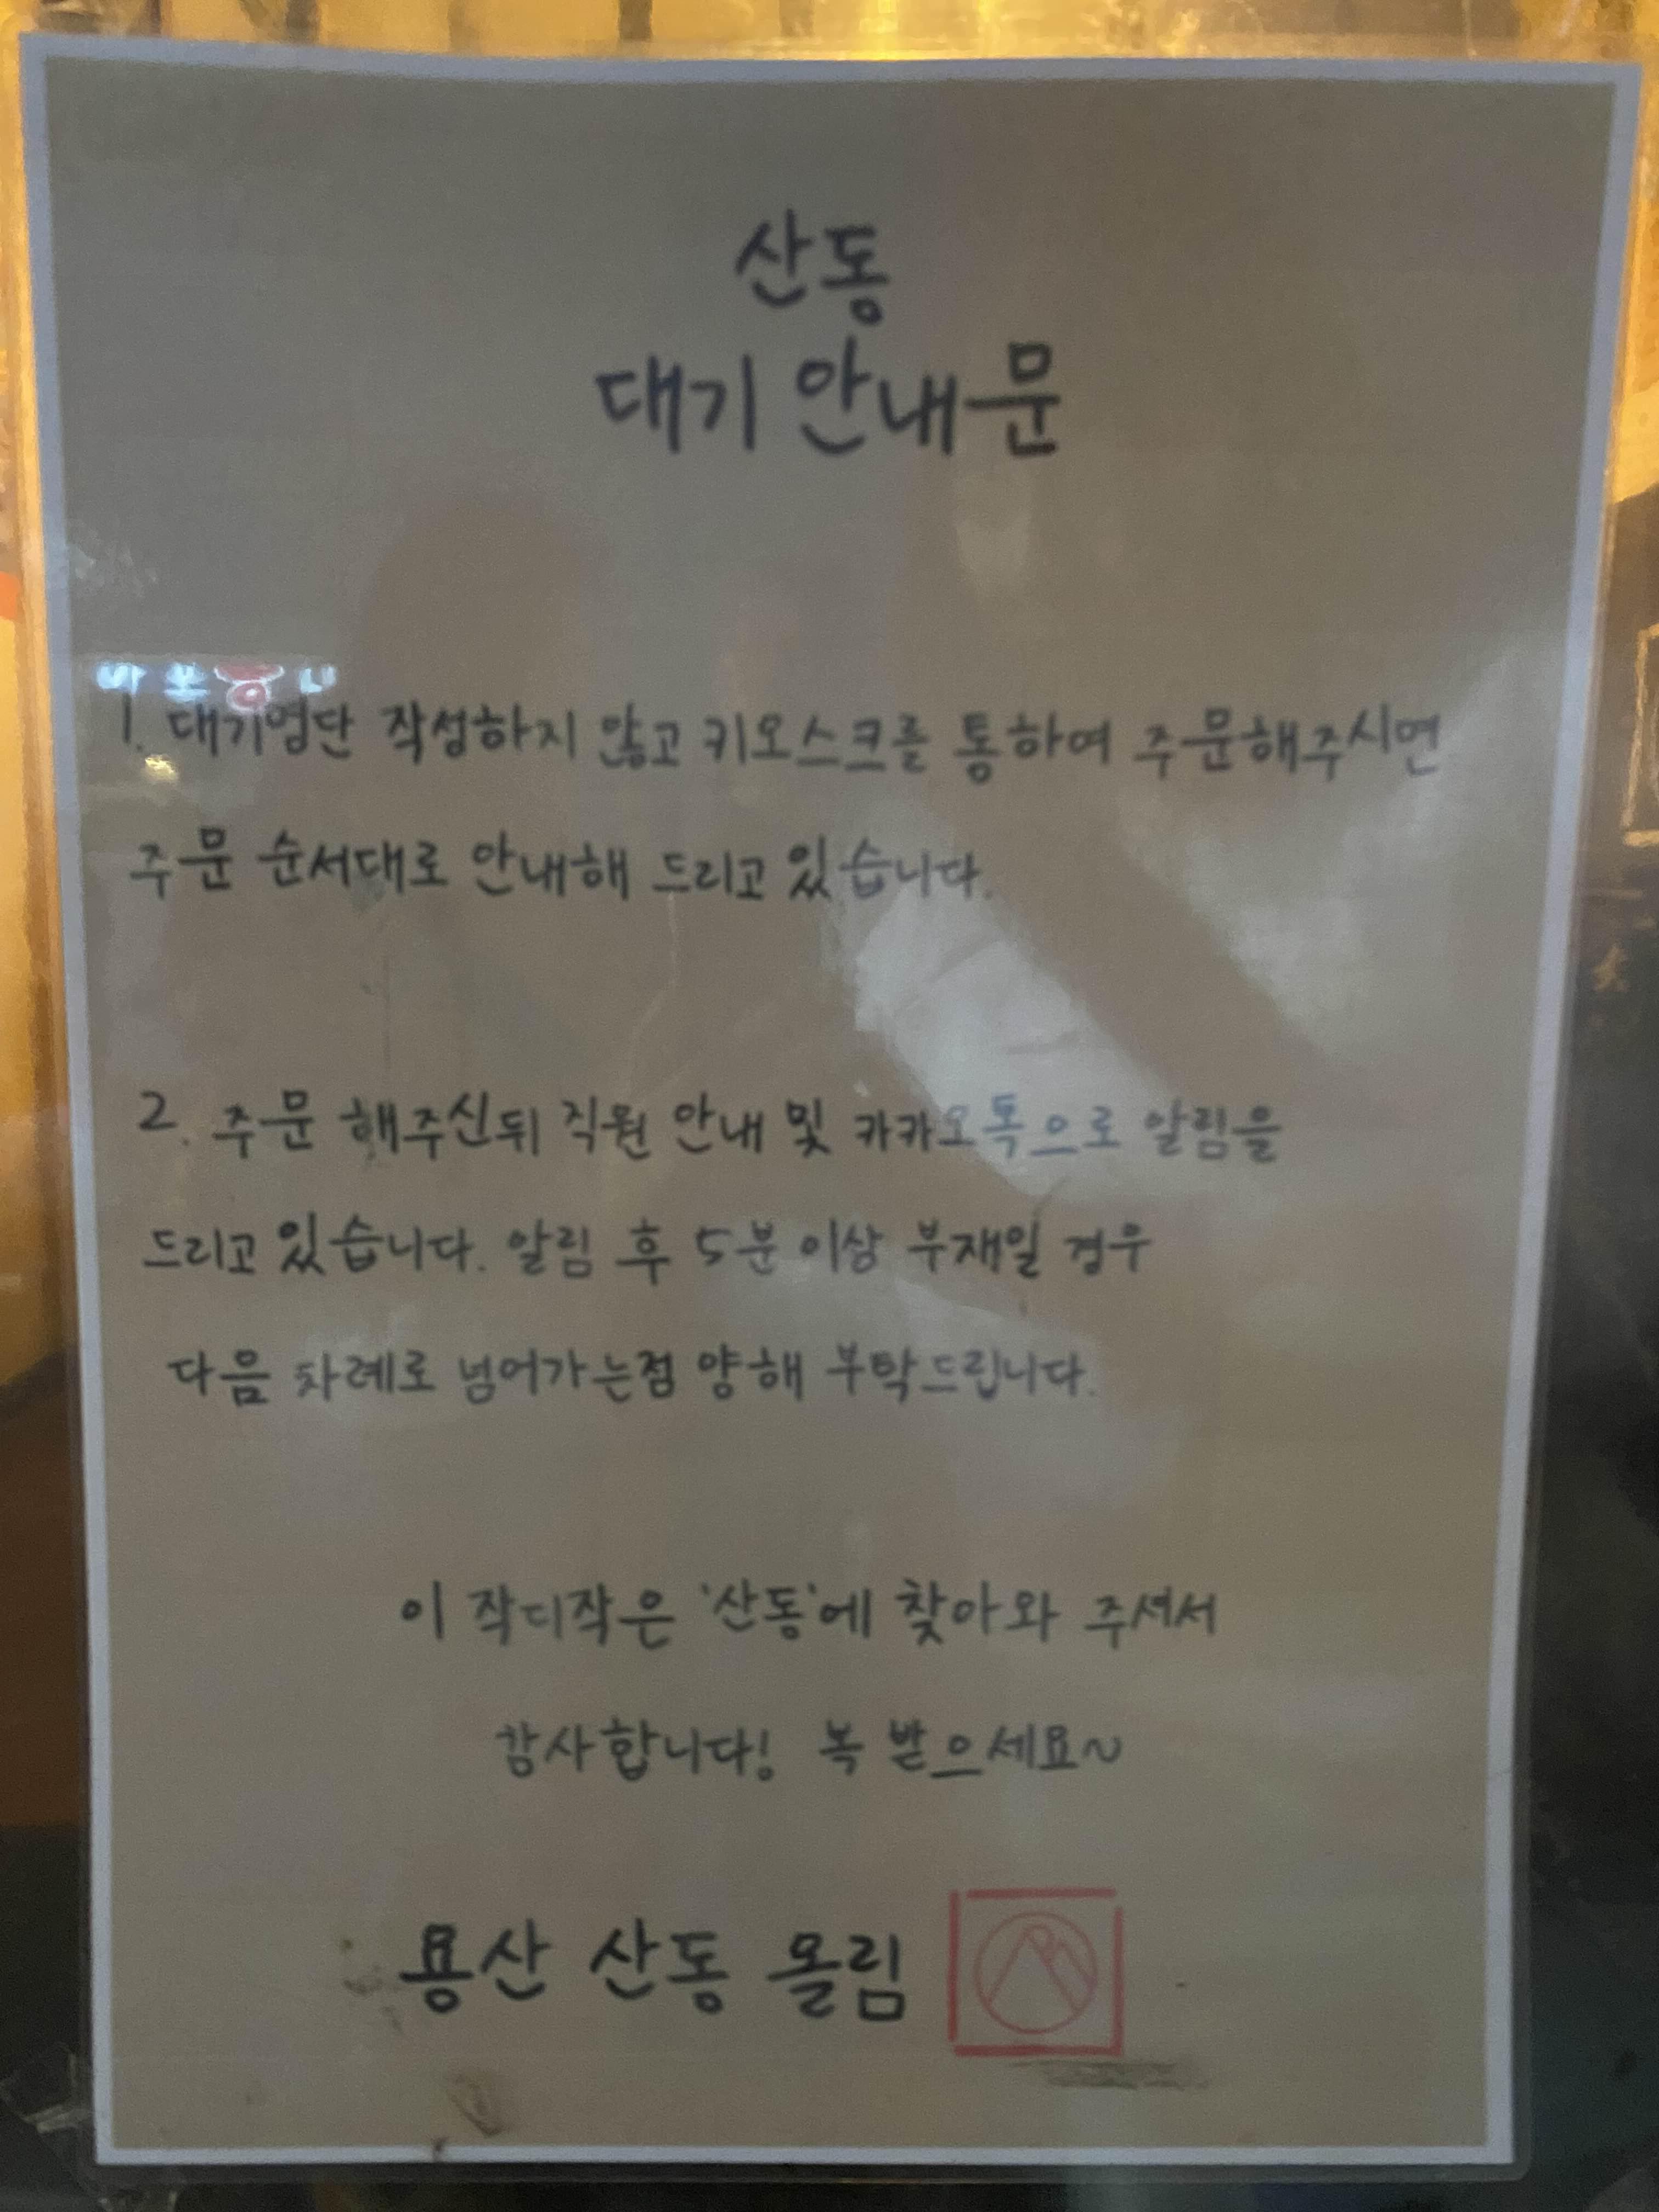 산동
대기 안내문
1. 대기명단 작성하지 않고 키오스크를 통하여 주문해주시면
주문 순서대로 안내해 드리고 있습니다.
2. 주문 해주신뒤 직원 안내 및 카카오톡으로 알림을
드리고 있습니다. 알림 후 5분 이상 부재일 경우
다음 차례로 넘어가는점 양해 부탁드립니다.
이 작디작은 '산동'에 찾아와 주셔서
감사합니다! 복 받으세요~
용산 산동 올림